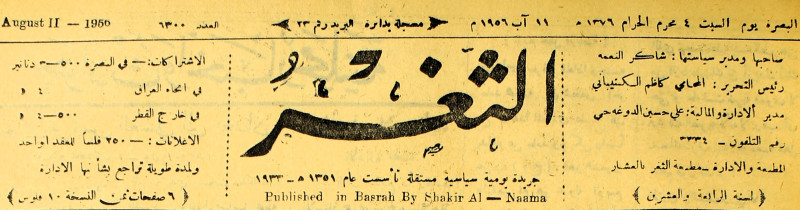 البصرة يوم السبت ٤ محرم الحرام ١٣٧٦ هـ ١١ آب ١٩٥٦ م مسجلة بدائرة البريد رقم ٢٣ العدد ٦٣٠٠ August 11 — 1956
صاحبها ومدير سياستها : شاكر النعمه
رئيس التحرير : المحامي كاظم الكشتيباني
مدير الادارة والمالية : علي حسين الدوغه جي
رقم التلفون – ٣٣٣٤
المطبعة والادارة – مطبعة الثغر بالعشار
لسنة الرابعة والعشرين
الثغر
جريدة يومية سياسية مستقلة تأسست عام ١٣٥١ هـ – ١٩٣٣
Published in Basrah By Shakir Al — Naama
الاشتراكات :— في البصرة ٥٠٠–٣ دنانير
في انحاء العراق ٤ د
في خارج القطر ٥٠٠–٤ د
الاعلانات :— ٢٥٠ فلساً للعقد الواحد
ولمدة طويلة تراجع بشأنها الادارة
٦ صفحات ثمن النسخة ١٠ فلوس